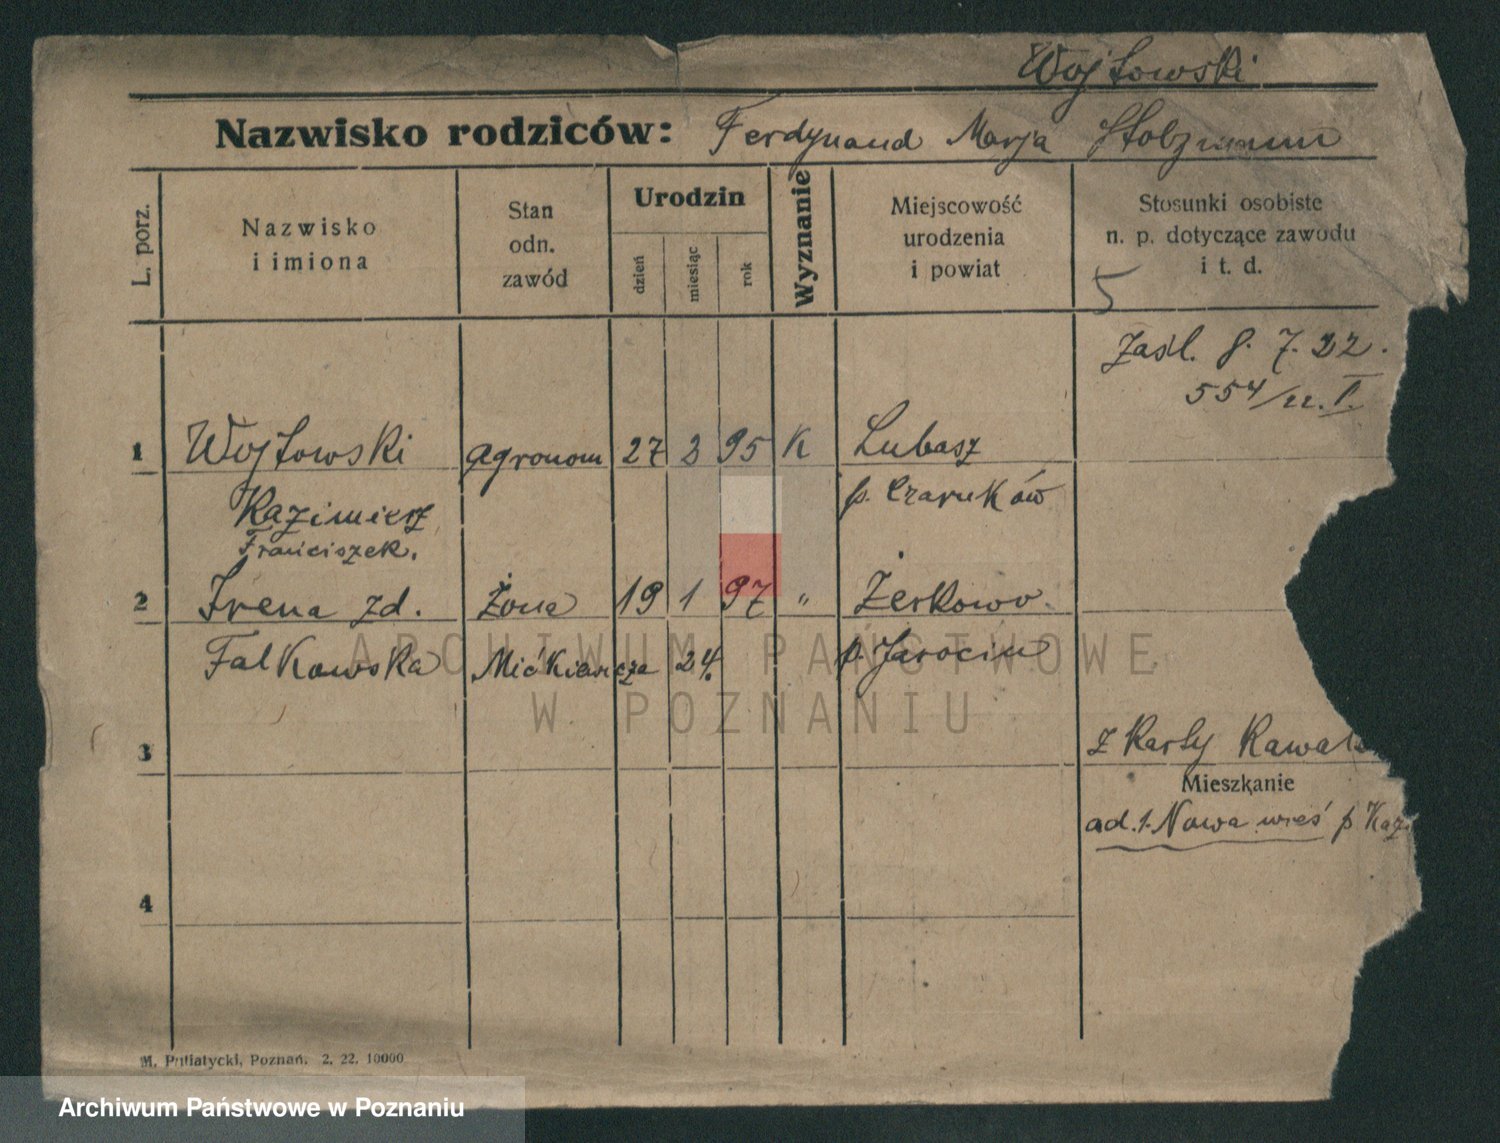 Wojtowski
Nazwisko rodziców: Ferdynand Marja Stolzmann
L. porz.
Nazwisko
i imiona
Stan
odn.
zawód
Urodzin
dzień
miesiąc
rok
Wyznanie
Miejscowość
urodzenia
i powiat
Stosunki osobiste
n. p. dotyczące zawodu
i t. d.
5
Zaśl. 8. 7. 22.
554/22. I.
1 Wojtowski agronom 27 2 95 K Lubasz
Kazimierz p. Czarnków
Franciszek.
2 Irena zd. żona 19 1 97 " Żerkowo.
Falkowska Mićkiewicza 24. p. Jarocin
ARCHIWUM PAŃSTWOWE
W POZNANIU
z Karty
3
Mieszkanie
ad. 1. Nowa wieś p
4
M. Putiatycki, Poznań. 2. 22. 10000
Archiwum Państwowe w Poznaniu